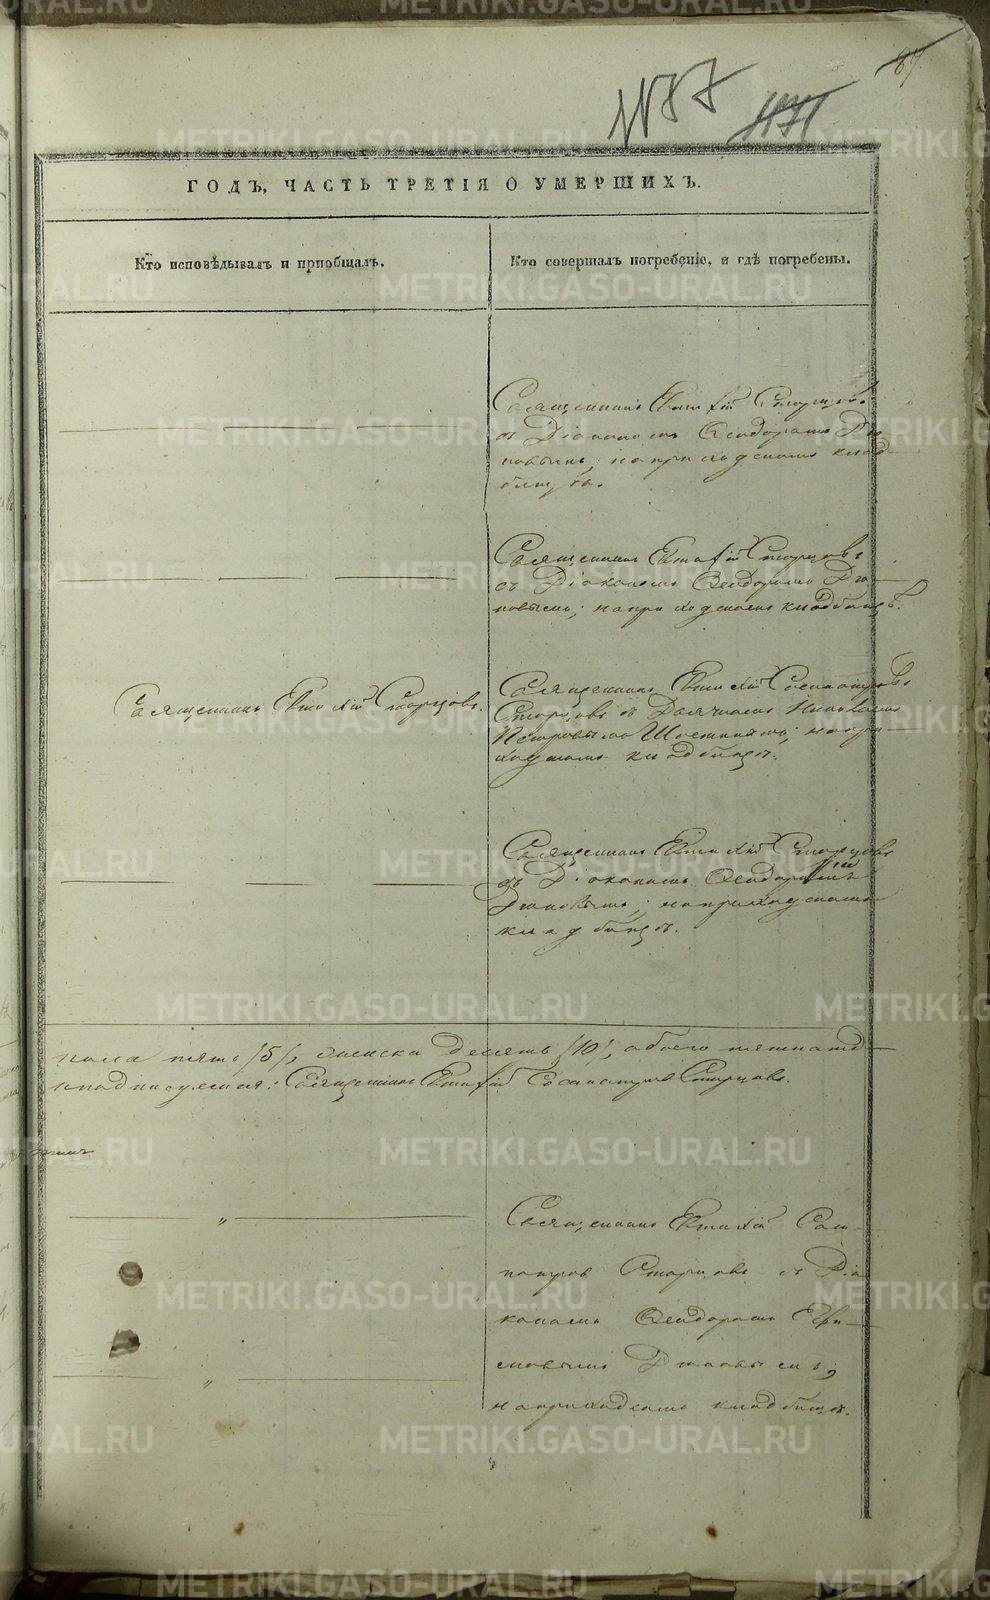 87
№ 87
ГОДЪ, ЧАСТЬ ТРЕТІЯ О УМЕРШИХЪ.
Кто исповѣдывалъ и пріобщалъ.
Кто совершалъ погребеніе, и гдѣ погребены.
Священникъ Евтихій Старцовъ
съ Діакономъ Ѳеодоромъ
на приходскомъ клад-
бищѣ.
Священникъ Евтихій Старцовъ
съ Діакономъ Ѳеодоромъ
на приходскомъ кладбищѣ.
Священникъ Евтихій Старцовъ.
Священникъ Евтихій Сосипатровъ
Старцовъ съ Дьячкомъ Николаемъ
Петровымъ на при-
ходскомъ кладбищѣ.
Священникъ Евтихій Старцовъ
съ Діакономъ Ѳеодоромъ
на приходскомъ
кладбищѣ.
пола пять /5/, женска десять /10/, обоего пятнад-
Священникъ Евтихій Сосипатровъ Старцовъ.
Священникъ Евтихій Соси-
патровъ Старцовъ съ Діа-
кономъ Ѳеодоромъ Ефи-
мовымъ
на приходскомъ кладбищѣ.
METRIKI.GASO-URAL.RU